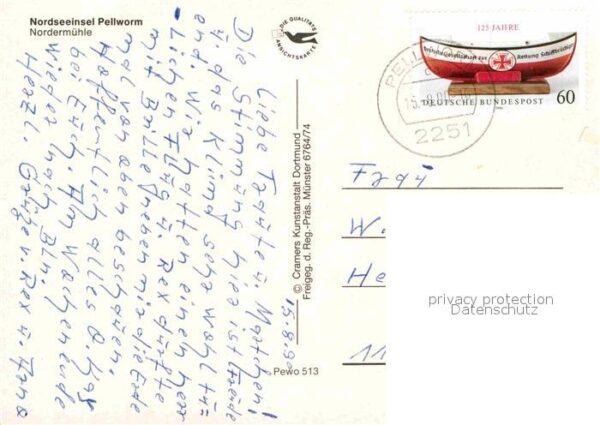 Nordseeinsel Pellworm
Nordermühle
DIE QUALITÄTS
ANSICHTSKARTE
Liebe Taute u. Matchen!
Die Stimmung hier ist Freude
u. das Klima sehr wohltu=
end. Wir hatten einen herr
lichen Flug u. Rex durfte
mit Brille neben mir die Erde
mal von oben beschauen.
Hoffentlich alles O.Kay
bei Euch. Am Wochenende
wieder nach Bln.
Herzl. Grüße v. Rex u.
15.8.90
© Cramers Kunstanstalt Dortmund
Freigeg. d. Reg.-Präs. Münster 6764/74
Pewo 513
125 JAHRE
Deutsche Gesellschaft zur Rettung Schiffbrüchiger
DEUTSCHE BUNDESPOST
60
PELLWORM
2251
Frau
W.
He
11
privacy protection
Datenschutz